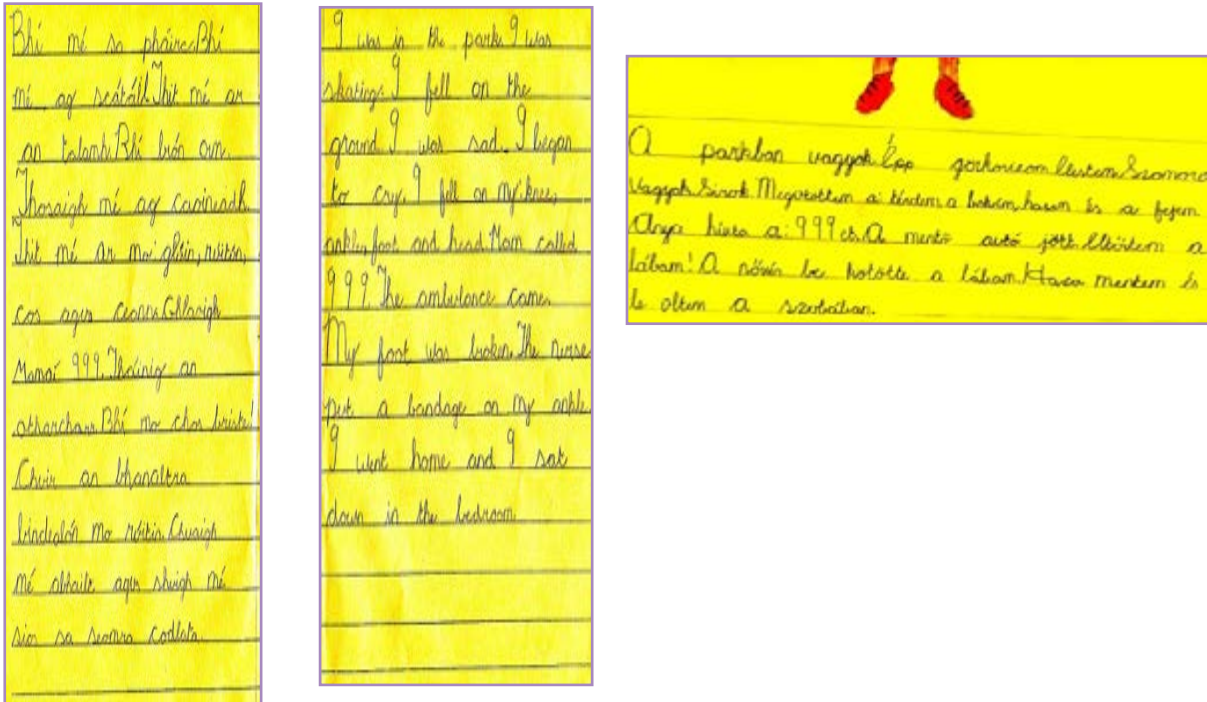 Bhí mé sa pháirc. Bhí
mé ag scátáll. Thit mé ar
an talamh. Bhí brón orm.
Thosaigh mé ag caoineadh.
Thit mé ar mo ghlúin, rúitín,
cos agus ceann. Ghlaoigh
Mamaí 999. Tháinig an
otharcharr. Bhí mo chos briste!
Chuir an bhanaltra
bindealán mo rúitín. Chuaigh
mé abhaile agus shuigh mé
síos sa seomra codlata.
I was in the park. I was
skating. I fell on the
ground. I was sad. I began
to cry. I fell on my knee,
ankle, foot and head. Mom called
999. The ambulance came.
My foot was broken. The nurse
put a bandage on my ankle.
I went home and I sat
down in the bedroom
A parkban vagyok. Épp Elestem. Szomorú
vagyok. Sirok. Megütöttem a térdem, a bokám, hasam és a fejem
Anya hívta a 999 et. A mentő autó jött. Eltörtem a
lábam! A nővér be kötötte a lábam. Haza mentem és
le ültem a szobában.